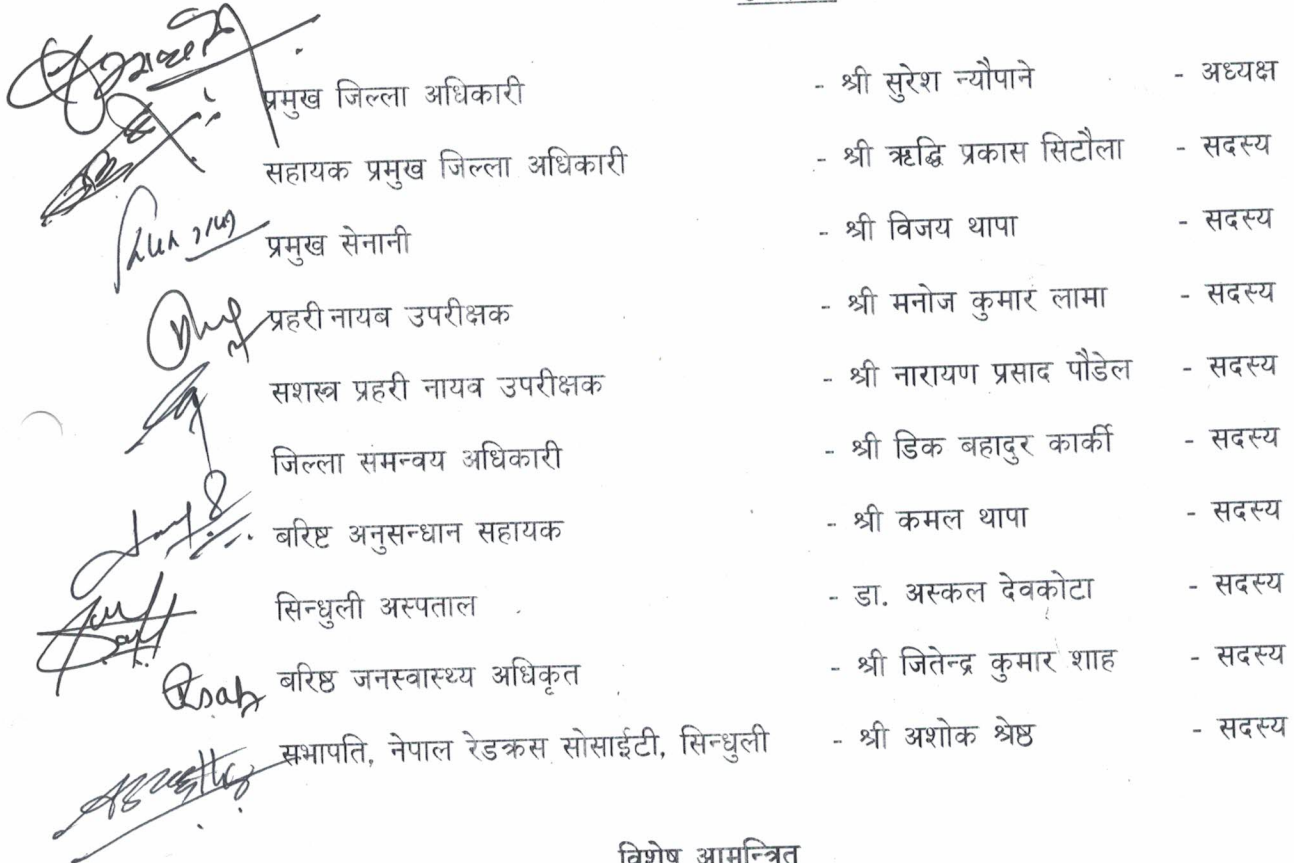 प्रमुख जिल्ला अधिकारी - श्री सुरेश न्यौपाने - अध्यक्ष
सहायक प्रमुख जिल्ला अधिकारी - श्री ऋद्धि प्रकास सिटौला - सदस्य
प्रमुख सेनानी - श्री विजय थापा - सदस्य
प्रहरी नायब उपरीक्षक - श्री मनोज कुमार लामा - सदस्य
सशस्त्र प्रहरी नायव उपरीक्षक - श्री नारायण प्रसाद पौडेल - सदस्य
जिल्ला समन्वय अधिकारी - श्री डिक बहादुर कार्की - सदस्य
बरिष्ट अनुसन्धान सहायक - श्री कमल थापा - सदस्य
सिन्धुली अस्पताल - डा. अस्कल देवकोटा - सदस्य
बरिष्ठ जनस्वास्थ्य अधिकृत - श्री जितेन्द्र कुमार शाह - सदस्य
सभापति, नेपाल रेडक्रस सोसाईटी, सिन्धुली - श्री अशोक श्रेष्ठ - सदस्य
विशेष आमन्त्रित